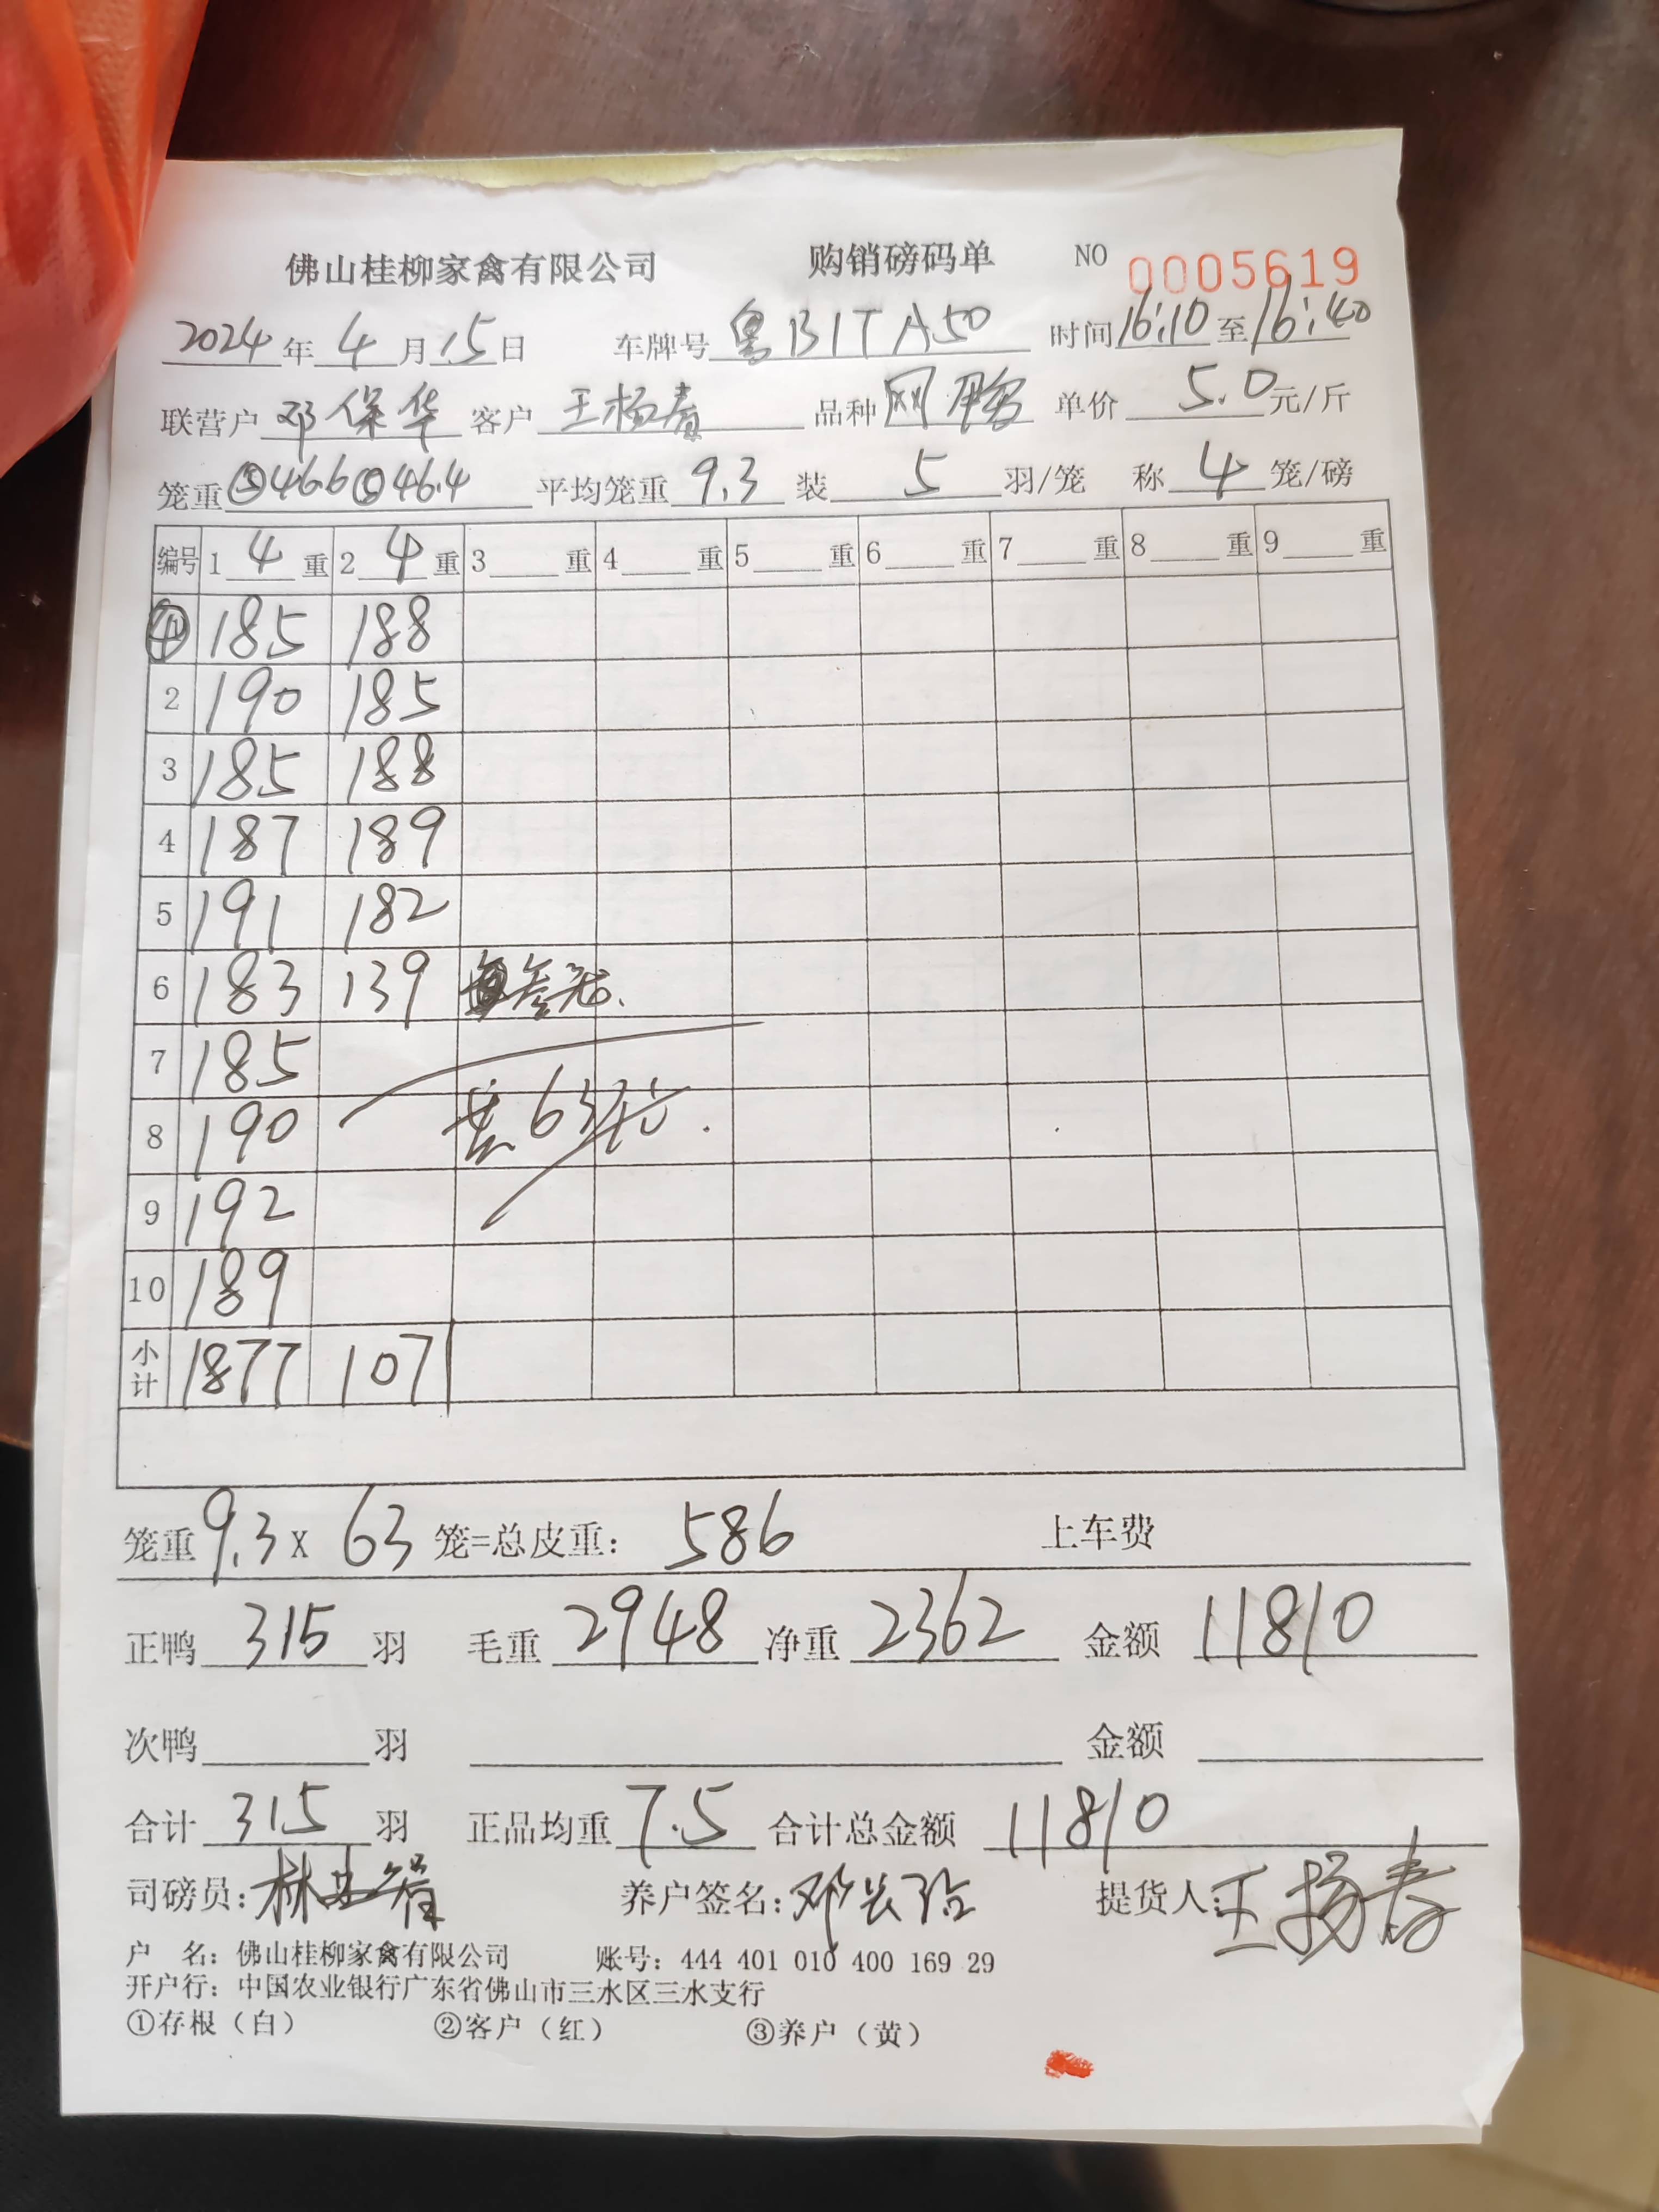 佛山桂柳家禽有限公司 购销磅码单 NO 0005619
2024年4月15日 车牌号粤B1TA50 时间16:10至16:40
联营户邓保华 客户王杨春 品种网鸭 单价5.0元/斤
笼重⑤46.6⑤46.4 平均笼重9.3 装5羽/笼 称4笼/磅
编号 1 4 重 2 4 重 3 重 4 重 5 重 6 重 7 重 8 重 9 重
185 188
2 190 185
3 185 188
4 187 189
5 191 182
6 183 139 叁笼.
7 185
8 190 共63笼.
9 192
10 189
小计 1877 1071
笼重9.3x63笼=总皮重:586 上车费
正鸭315羽 毛重2948 净重2362 金额11810
次鸭 羽 金额
合计315羽 正品均重7.5 合计总金额11810
司磅员:林 养户签名:邓 提货人:王扬春
户 名:佛山桂柳家禽有限公司 账号:444 401 010 400 169 29
开户行:中国农业银行广东省佛山市三水区三水支行
①存根(白) ②客户(红) ③养户(黄)